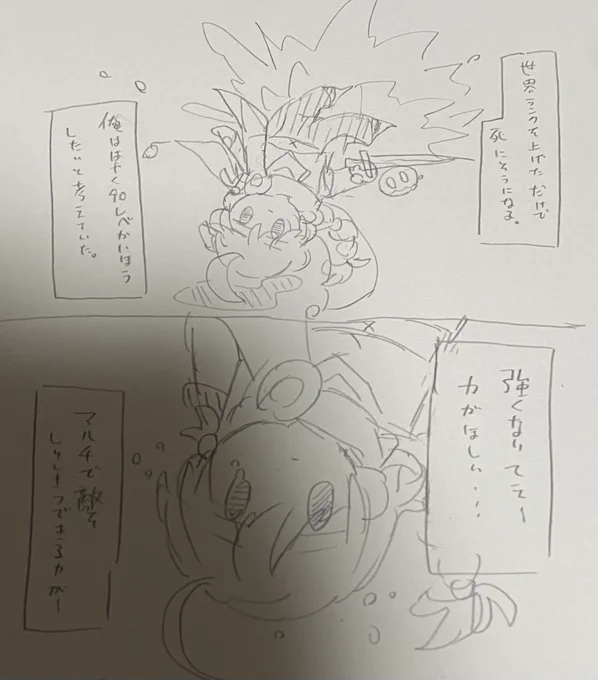 世界ランクを上げただけで
死にそうになる。
俺ははやく90レベかいほう
したいと考えていた。
強くなりてェー
力がほしい・・!
マルチで敵を
しゅんさつできる力がー